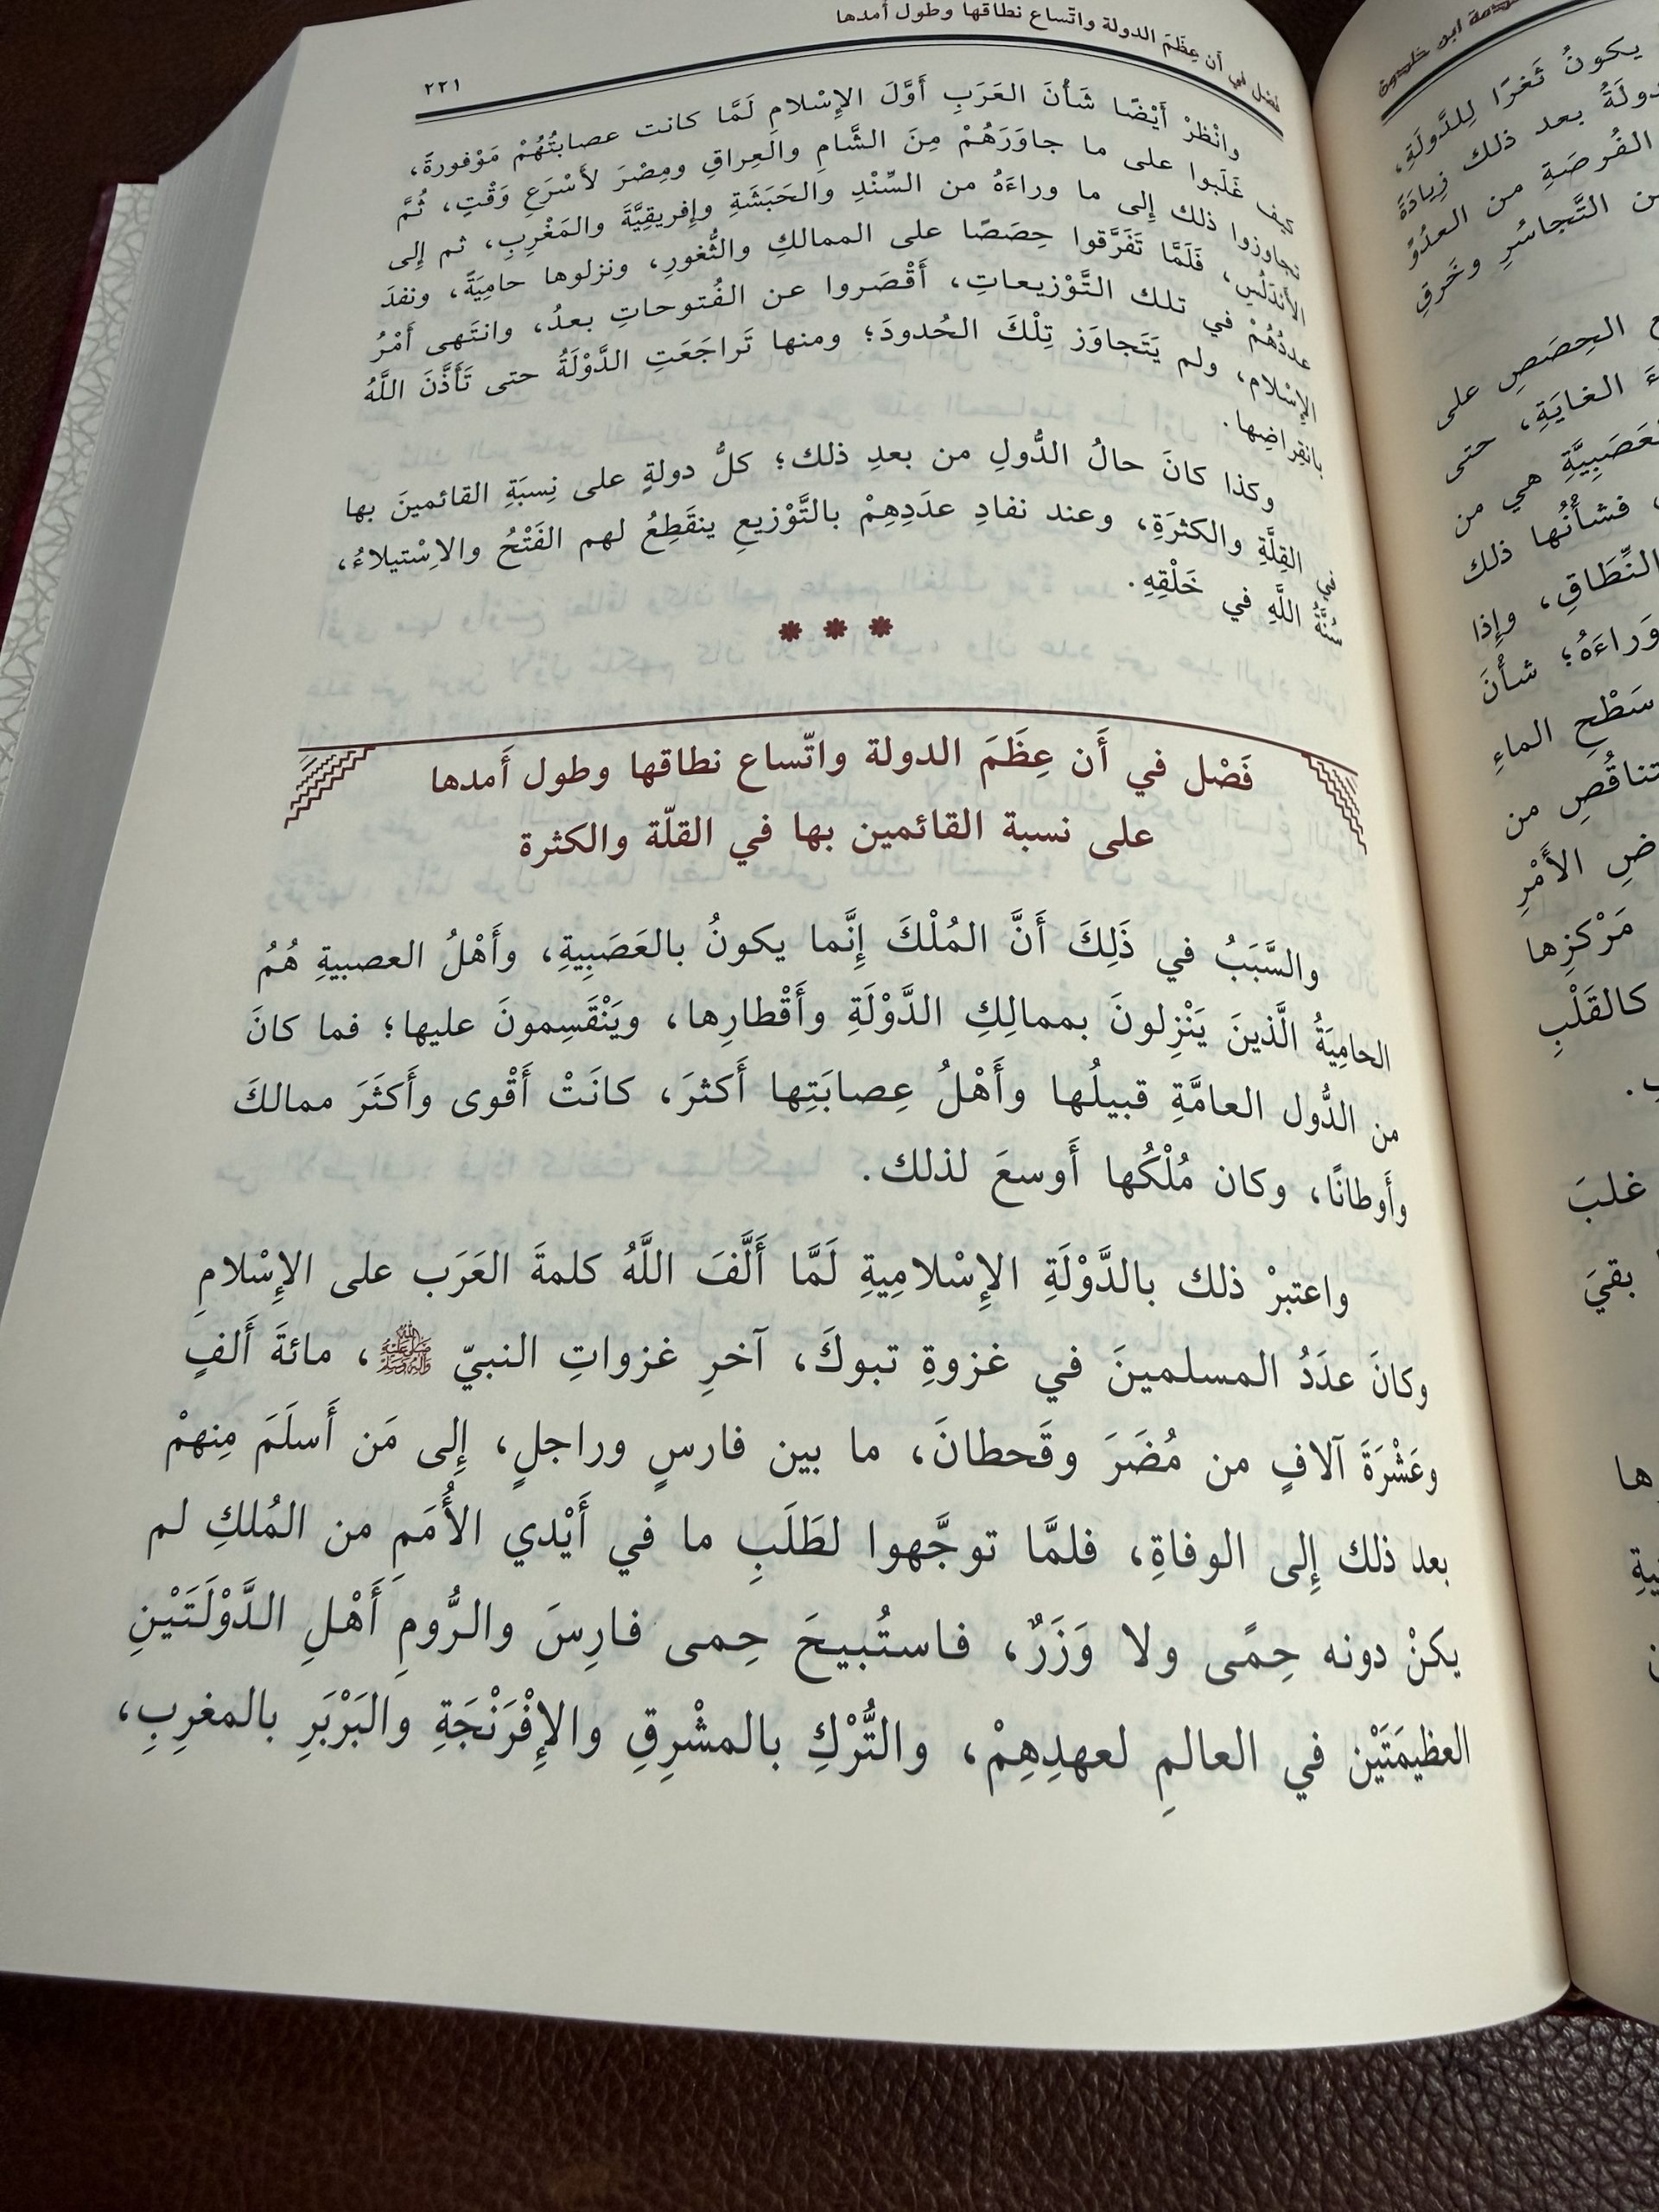 فصل في أن عِظَمَ الدولة واتّساع نطاقها وطول أمدها
٢٢١
وانْظرْ أَيْضًا شَأْنَ العَرَبِ أَوَّلَ الإِسْلامِ لَمَّا كانت عصابتُهُمْ مَوْفورةً،
كيف غَلَبوا على ما جاوَرَهُمْ مِنَ الشَّامِ والعِراقِ ومِصْرَ لأَسْرَعِ وَقْتٍ، ثُمَّ
تجاوزوا ذلك إِلى ما وراءَهُ من السِّنْدِ والحَبَشَةِ وإِفريقِيَّةَ والمَغْرِبِ، ثم إِلى
الأَندَلُسِ، فَلَمَّا تَفَرَّقوا حِصَصًا على الممالكِ والثُّغورِ، ونزلوها حامِيَةً، ونفدَ
عددُهُمْ في تلك التَّوْزيعاتِ، أَقْصَروا عن الفُتوحاتِ بعدُ، وانتَهى أَمْرُ
الإِسْلام، ولم يَتَجاوَز تِلْكَ الحُدودَ؛ ومنها تَراجَعَتِ الدَّوْلَةُ حتى تَأَذَّنَ اللَّهُ
بانقِراضِها.
وكذا كانَ حالُ الدُّولِ من بعدِ ذلك؛ كلُّ دولةٍ على نِسبَةِ القائمينَ بها
في القِلَّةِ والكثرَةِ، وعند نفادِ عدَدِهِمْ بالتَّوْزيعِ ينقَطِعُ لهم الفَتْحُ والاِسْتيلاءُ،
سُنَّةُ اللَّهِ في خَلْقِهِ.
فَصْل في أَن عِظَمَ الدولة واتّساع نطاقها وطول أَمدها
على نسبة القائمين بها في القلّة والكثرة
والسَّبَبُ في ذَلِكَ أَنَّ المُلْكَ إِنَّما يكونُ بالعَصَبِيةِ، وأَهْلُ العصبيةِ هُمُ
الحامِيَةُ الَّذينَ يَنْزِلونَ بممالِكِ الدَّوْلَةِ وأَقْطارِها، ويَنْقَسِمونَ عليها؛ فما كانَ
من الدُّول العامَّةِ قبيلُها وأَهْلُ عِصابَتِها أَكثرَ، كانَتْ أَقْوى وأَكثَرَ ممالكَ
وأَوطانًا، وكان مُلْكُها أَوسعَ لذلك.
واعتبرْ ذلك بالدَّوْلَةِ الإِسْلامِيةِ لَمَّا أَلَّفَ اللَّهُ كلمةَ العَرَب على الإِسْلامِ
وكانَ عدَدُ المسلمينَ في غزوةِ تبوكَ، آخرِ غزواتِ النبيّ ﷺ، مائةَ أَلفٍ
وعَشْرَةَ آلافٍ من مُضَرَ وقَحطانَ، ما بين فارسٍ وراجلٍ، إِلى مَن أَسلَمَ مِنهمْ
بعد ذلك إِلى الوفاةِ، فلمَّا توجَّهوا لطَلَبِ ما في أَيْدي الأُمَمِ من المُلكِ لم
يكنْ دونه حِمًى ولا وَزَرٌ، فاستُبيحَ حِمى فارِسَ والرُّومِ أَهْلِ الدَّوْلَتَيْنِ
العظيمَتَيْن في العالمِ لعهدِهِمْ، والتُّرْكِ بالمشْرِقِ والإِفْرَنْجَةِ والبَرْبَرِ بالمغرِبِ،
يكونُ ثَغرًا لِلدَّولَةِ،
بعد ذلك زِيادَةً
الفُرصَةِ من العدُوِّ
التَّجاسُرِ وخَرقِ
الحِصَصِ على
الغايَةِ، حتى
هي من
فشأْنُها ذلك
النِّطَاقِ، وإِذا
وَراءَهُ؛ شأْنَ
سَطْحِ الماءِ
من
الأَمْرِ
مَرْكزِها
كالقَلْبِ
غلبَ
بقيَ